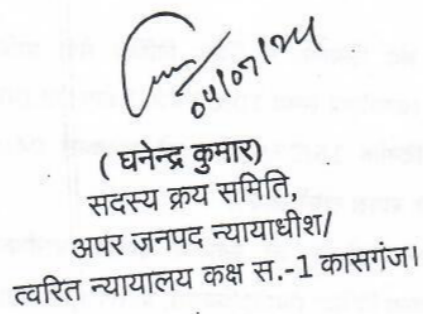 04/07/24
( घनेन्द्र कुमार)
सदस्य क्रय समिति,
अपर जनपद न्यायाधीश/
त्वरित न्यायालय कक्ष स.-1 कासगंज।